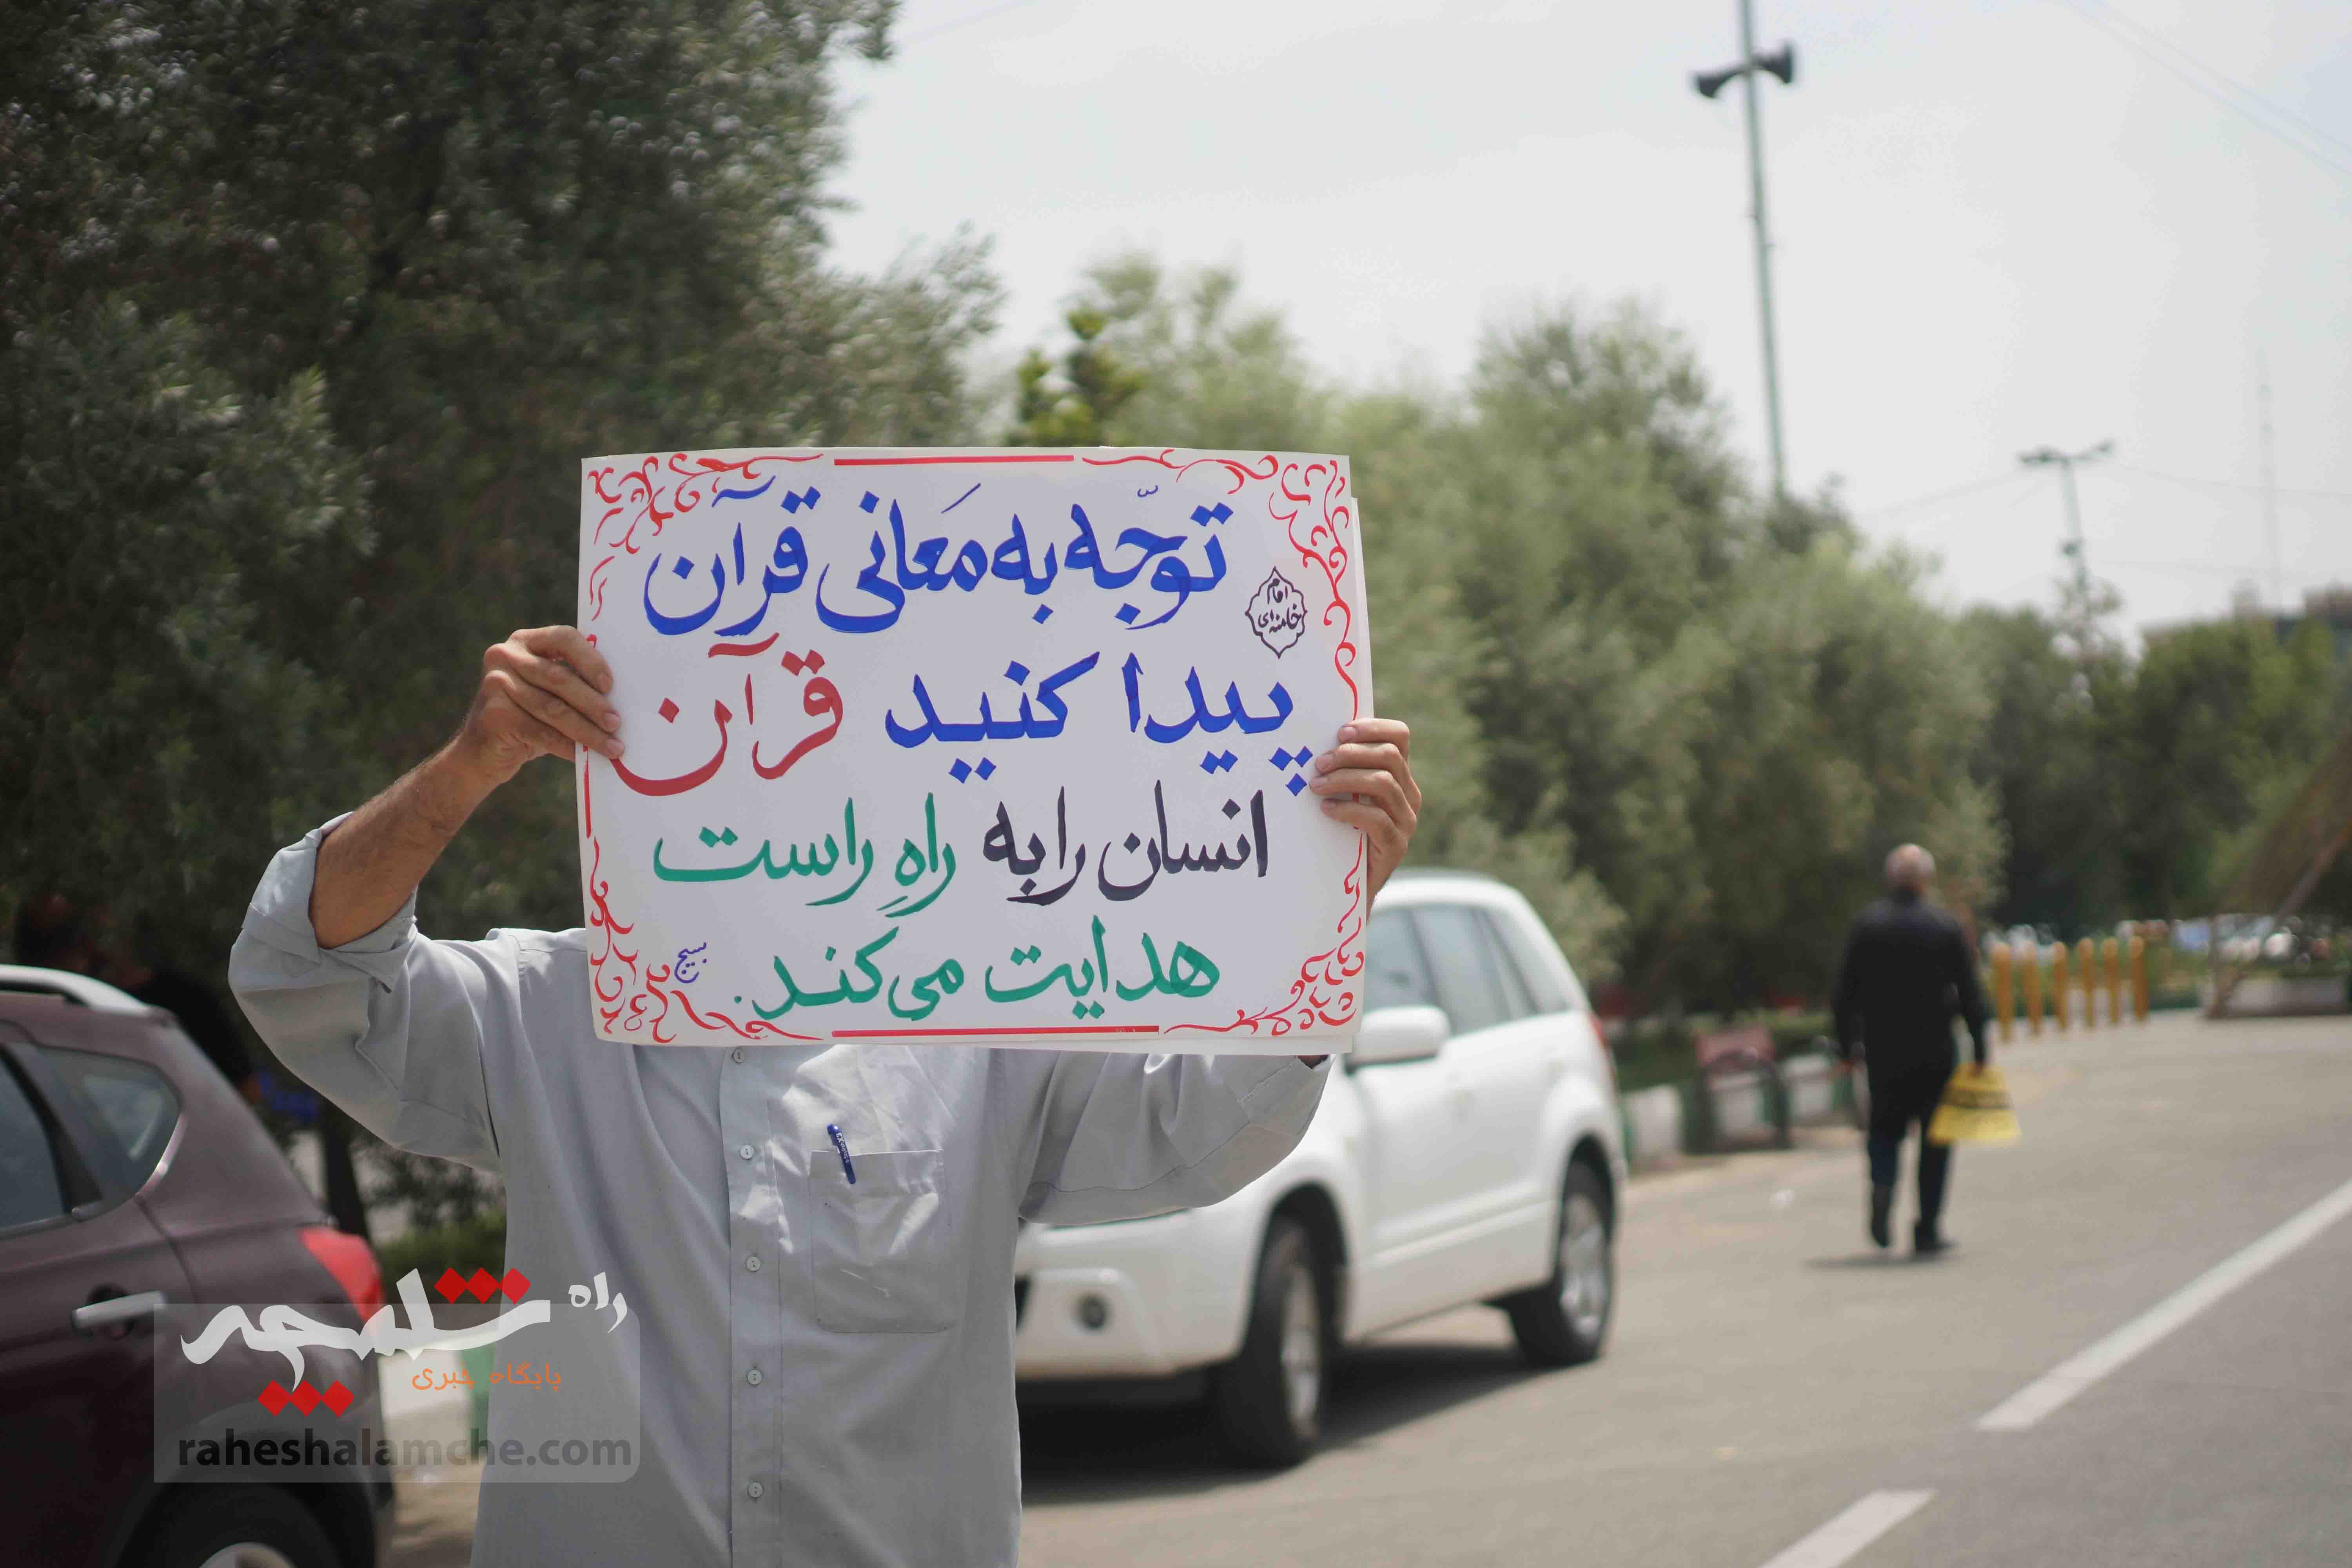 توجّه به مَعانی قرآن
امام
خامنه‌ای
پیدا کنید قرآن
انسان را به راهِ راست
هدایت می‌کند.
بسیج
راه شلمچه
پایگاه خبری
raheshalamche.com